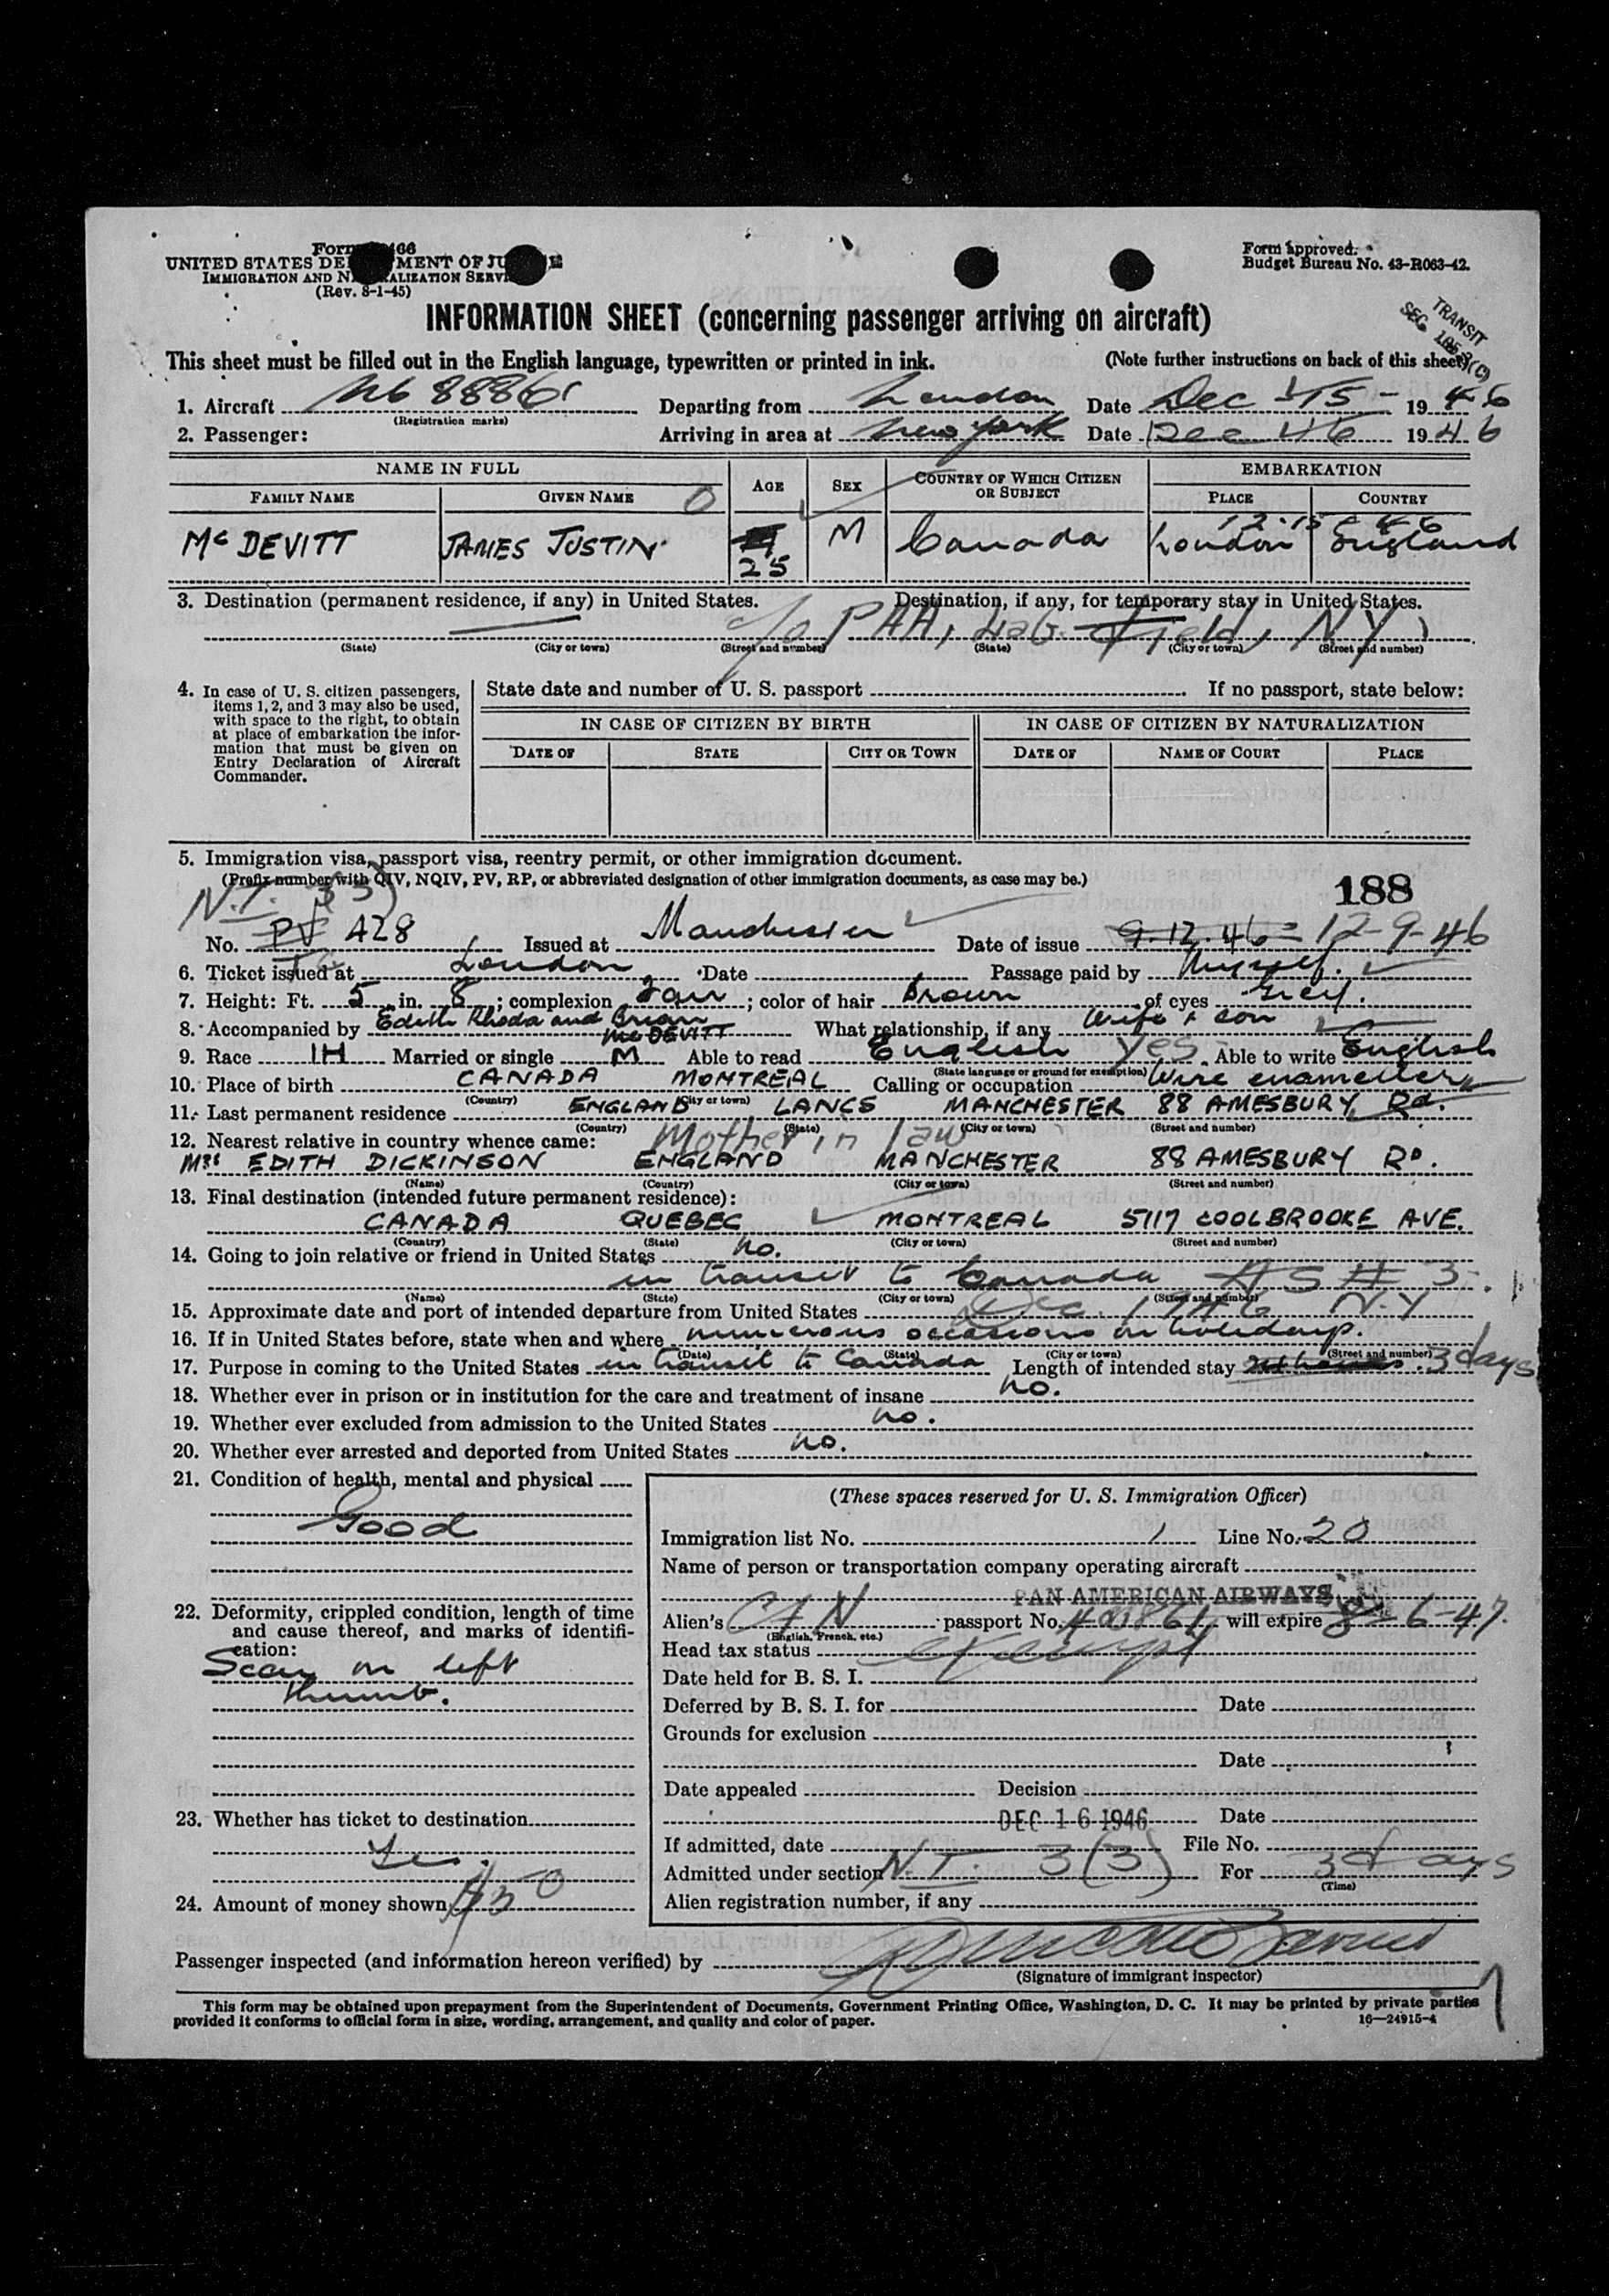 Form 466
UNITED STATES DEPARTMENT OF JUSTICE
IMMIGRATION AND NATURALIZATION SERVICE
(Rev. 8-1-45)
Form approved.
Budget Bureau No. 43-R063-42.
INFORMATION SHEET (concerning passenger arriving on aircraft)
TRANSIT
SEC
This sheet must be filled out in the English language, typewritten or printed in ink. (Note further instructions on back of this sheet)
1. Aircraft Departing from London Date Dec 15 - 19 46
(Registration marks)
2. Passenger: Arriving in area at New York Date Dec 19 46
NAME IN FULL AGE SEX COUNTRY OF WHICH CITIZEN OR SUBJECT EMBARKATION
FAMILY NAME GIVEN NAME PLACE COUNTRY
McDEVITT JAMES JUSTIN 25 M Canada London England
3. Destination (permanent residence, if any) in United States. Destination, if any, for temporary stay in United States.
c/o PAA, LaG. Field, NY
(State) (City or town) (Street and number) (State) (City or town) (Street and number)
4. In case of U. S. citizen passengers, items 1, 2, and 3 may also be used, with space to the right, to obtain at place of embarkation the information that must be given on Entry Declaration of Aircraft Commander.
State date and number of U. S. passport If no passport, state below:
IN CASE OF CITIZEN BY BIRTH IN CASE OF CITIZEN BY NATURALIZATION
DATE OF STATE CITY OR TOWN DATE OF NAME OF COURT PLACE
5. Immigration visa, passport visa, reentry permit, or other immigration document.
(Prefix number with QIV, NQIV, PV, RP, or abbreviated designation of other immigration documents, as case may be.)
N.T. 3(3) 188
No. PV 428 Issued at Manchester Date of issue 9.12.46 12-9-46
6. Ticket issued at London Date Passage paid by Myself.
7. Height: Ft. 5 in. 8; complexion Fair; color of hair Brown of eyes Grey.
8. Accompanied by Edith Rhoda and Brian McDEVITT What relationship, if any Wife + son
9. Race IH Married or single M Able to read English yes Able to write English
(State language or ground for exemption)
10. Place of birth CANADA MONTREAL Calling or occupation Wire enameller
(Country) (City or town)
11. Last permanent residence ENGLAND LANCS MANCHESTER 88 AMESBURY Rd.
(Country) (State) (City or town) (Street and number)
12. Nearest relative in country whence came: Mother in law
Mrs EDITH DICKINSON ENGLAND MANCHESTER 88 AMESBURY RD.
(Name) (Country) (City or town) (Street and number)
13. Final destination (intended future permanent residence):
CANADA QUEBEC MONTREAL 5117 COOLBROOKE AVE.
(Country) (State) (City or town) (Street and number)
14. Going to join relative or friend in United States no.
in transit to Canada AS # 3
(Name) (State) (City or town) (Street and number)
15. Approximate date and port of intended departure from United States Dec. 1946 N.Y
16. If in United States before, state when and where numerous occasions on holidays.
(Date) (State) (City or town) (Street and number)
17. Purpose in coming to the United States in transit to Canada Length of intended stay 3 days
18. Whether ever in prison or in institution for the care and treatment of insane no.
19. Whether ever excluded from admission to the United States no.
20. Whether ever arrested and deported from United States no.
21. Condition of health, mental and physical
Good
22. Deformity, crippled condition, length of time and cause thereof, and marks of identification:
Scar on left
thumb.
23. Whether has ticket to destination
Yes.
24. Amount of money shown $50
(These spaces reserved for U. S. Immigration Officer)
Immigration list No. 1 Line No. 20
Name of person or transportation company operating aircraft
PAN AMERICAN AIRWAYS
Alien's CAN passport No. will expire 8-6-47.
(English, French, etc.)
Head tax status exempt
Date held for B. S. I.
Deferred by B. S. I. for Date
Grounds for exclusion
Date
Date appealed Decision
DEC 16 1946 Date
If admitted, date File No.
Admitted under section N.T. 3(3) For 3 days
(Time)
Alien registration number, if any
Passenger inspected (and information hereon verified) by
(Signature of immigrant inspector)
This form may be obtained upon prepayment from the Superintendent of Documents, Government Printing Office, Washington, D. C. It may be printed by private parties
provided it conforms to official form in size, wording, arrangement, and quality and color of paper. 16—24915-4